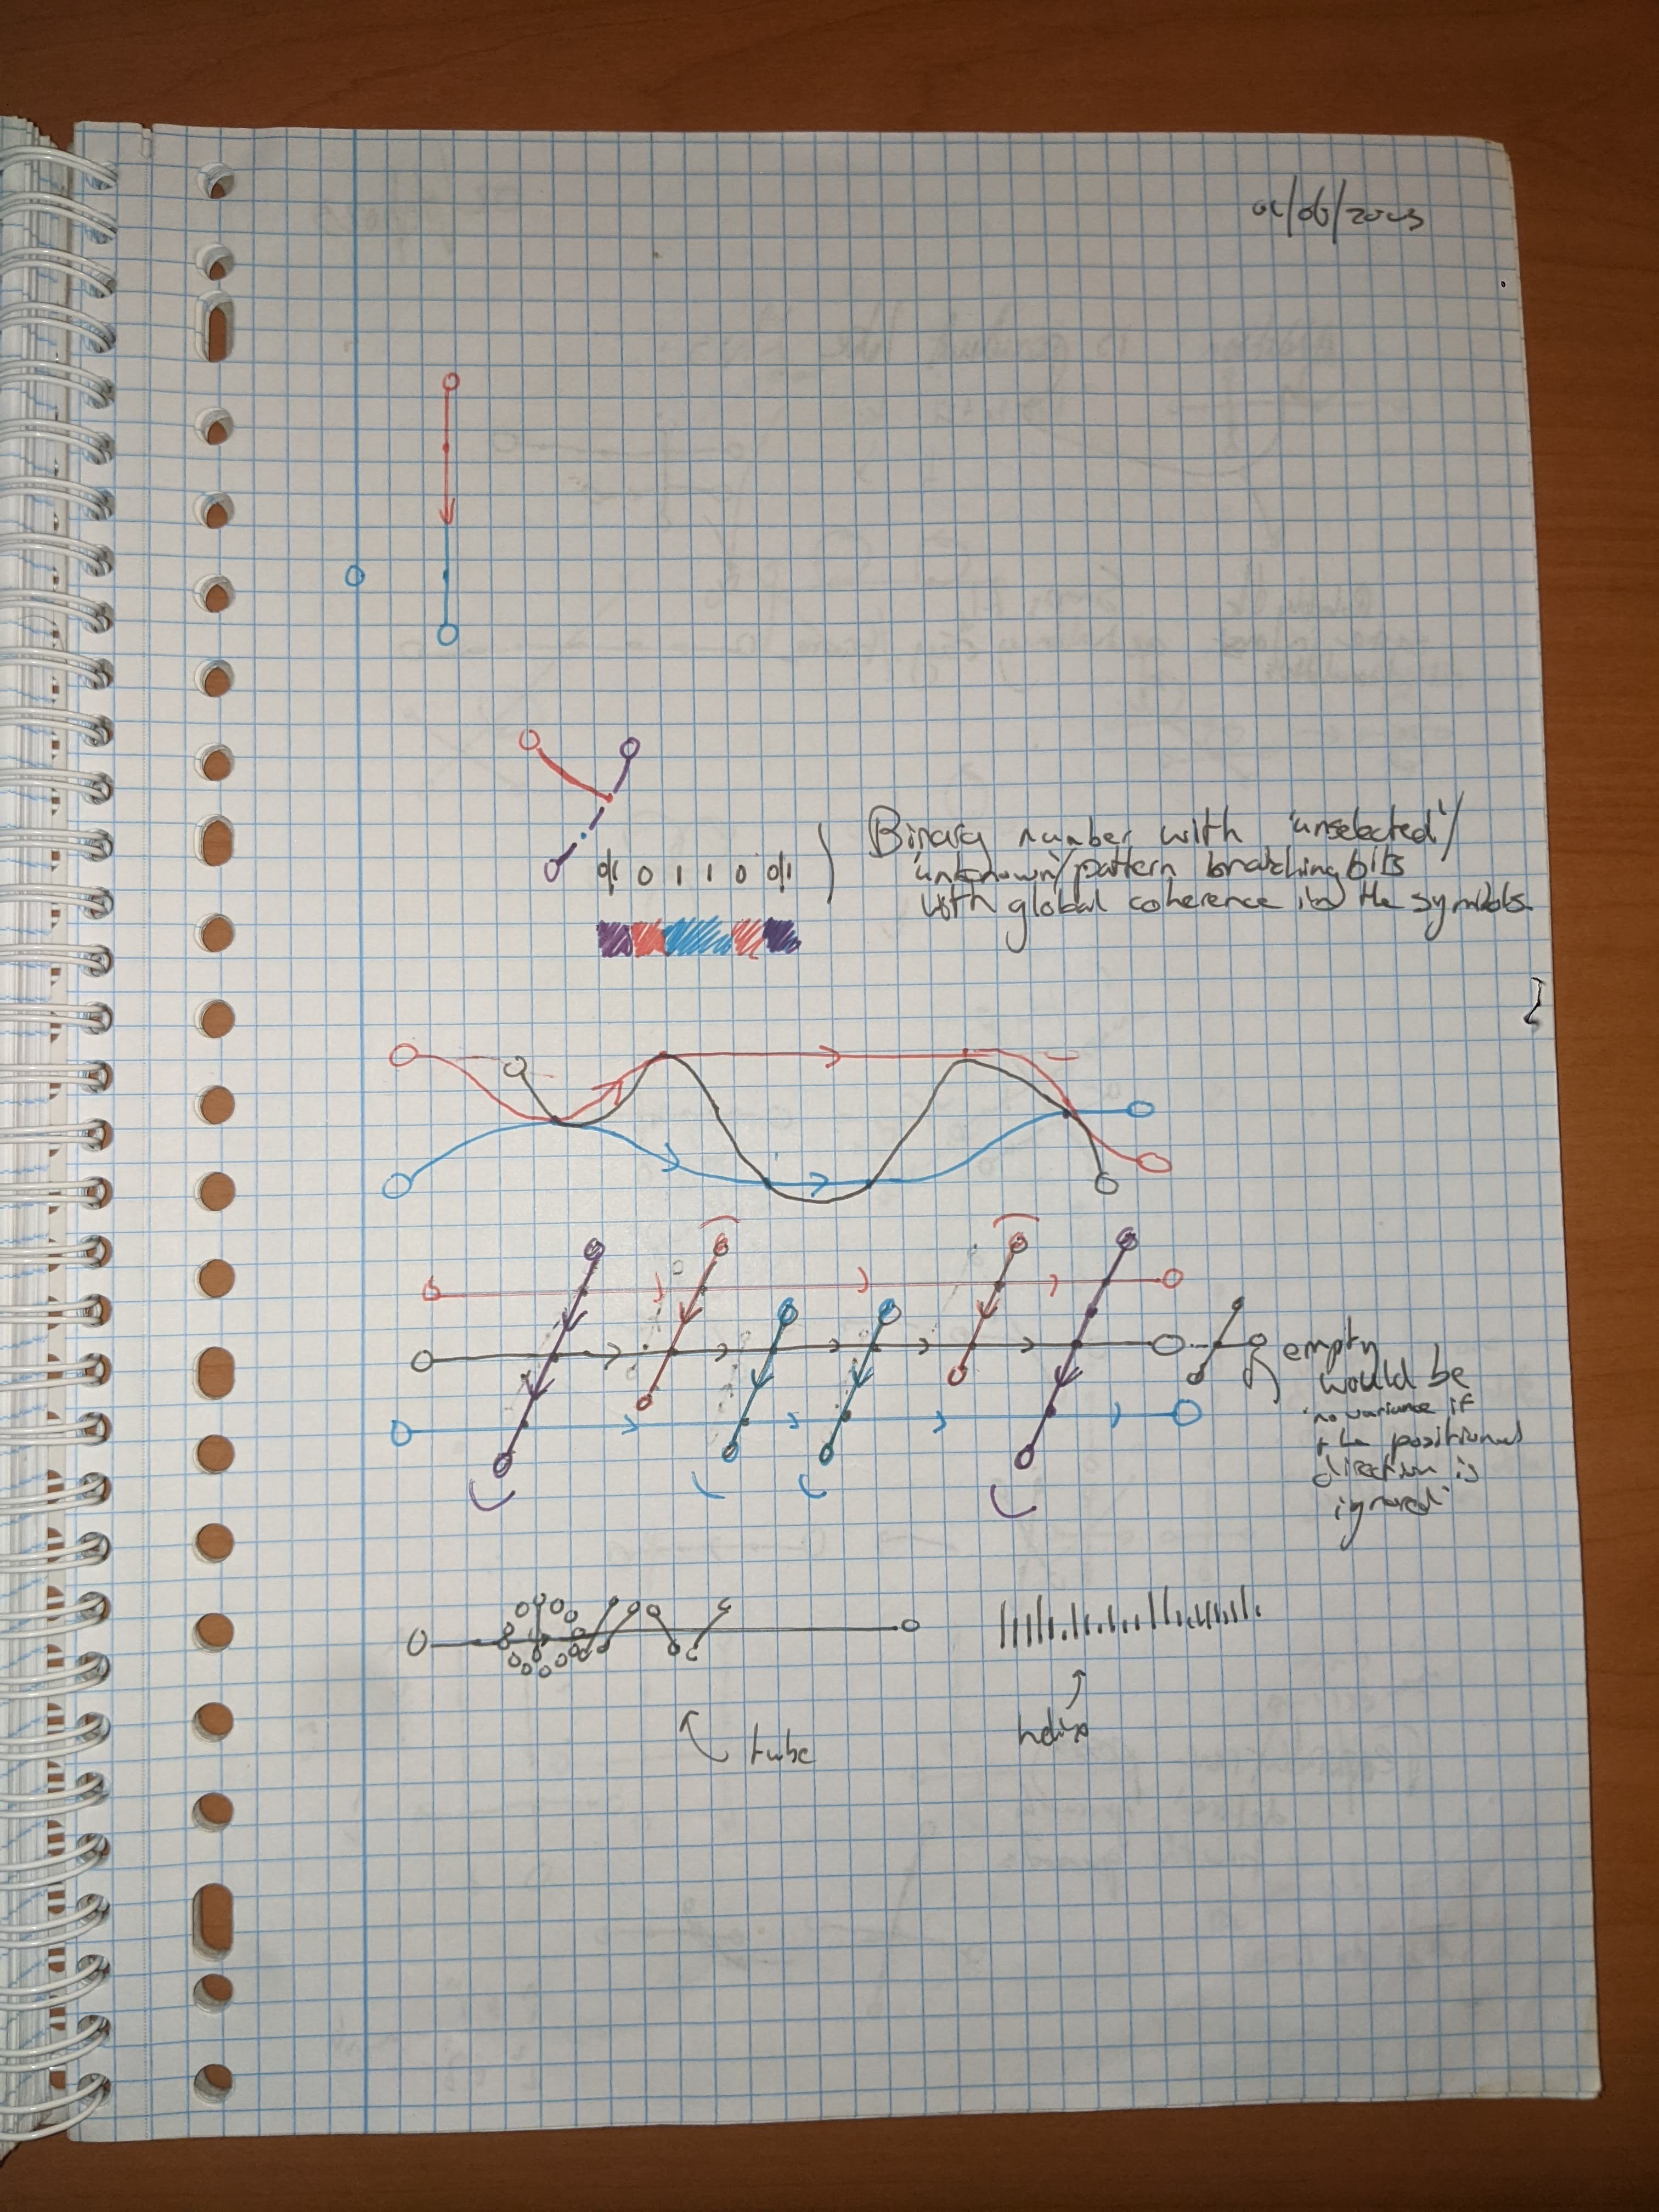 0|1 0 1 1 0 0|1
Binary number with 'unselected'/
'unknown'/pattern branching bits
with global coherence in the symbols
empty
would be
'no variance if
the positional
direction is
ignored'
tube
helix